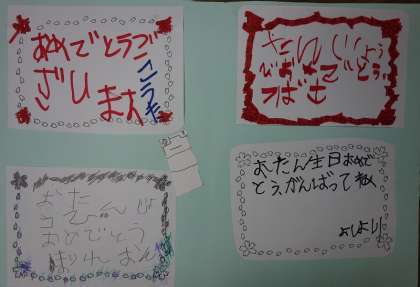 おめでとうご
ざいます
こうき
たんじょう
びおめでとう
つばさ
おたん生日おめで
とう、がんばってね
よしより
おた
んじょ
うび
おめでとう